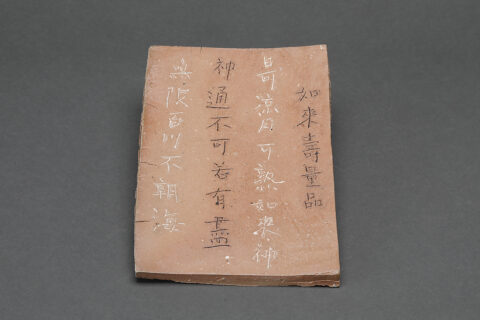 如來壽量品
日可涼月可熱如來神
神通不可若有盡
無限百川不朝海